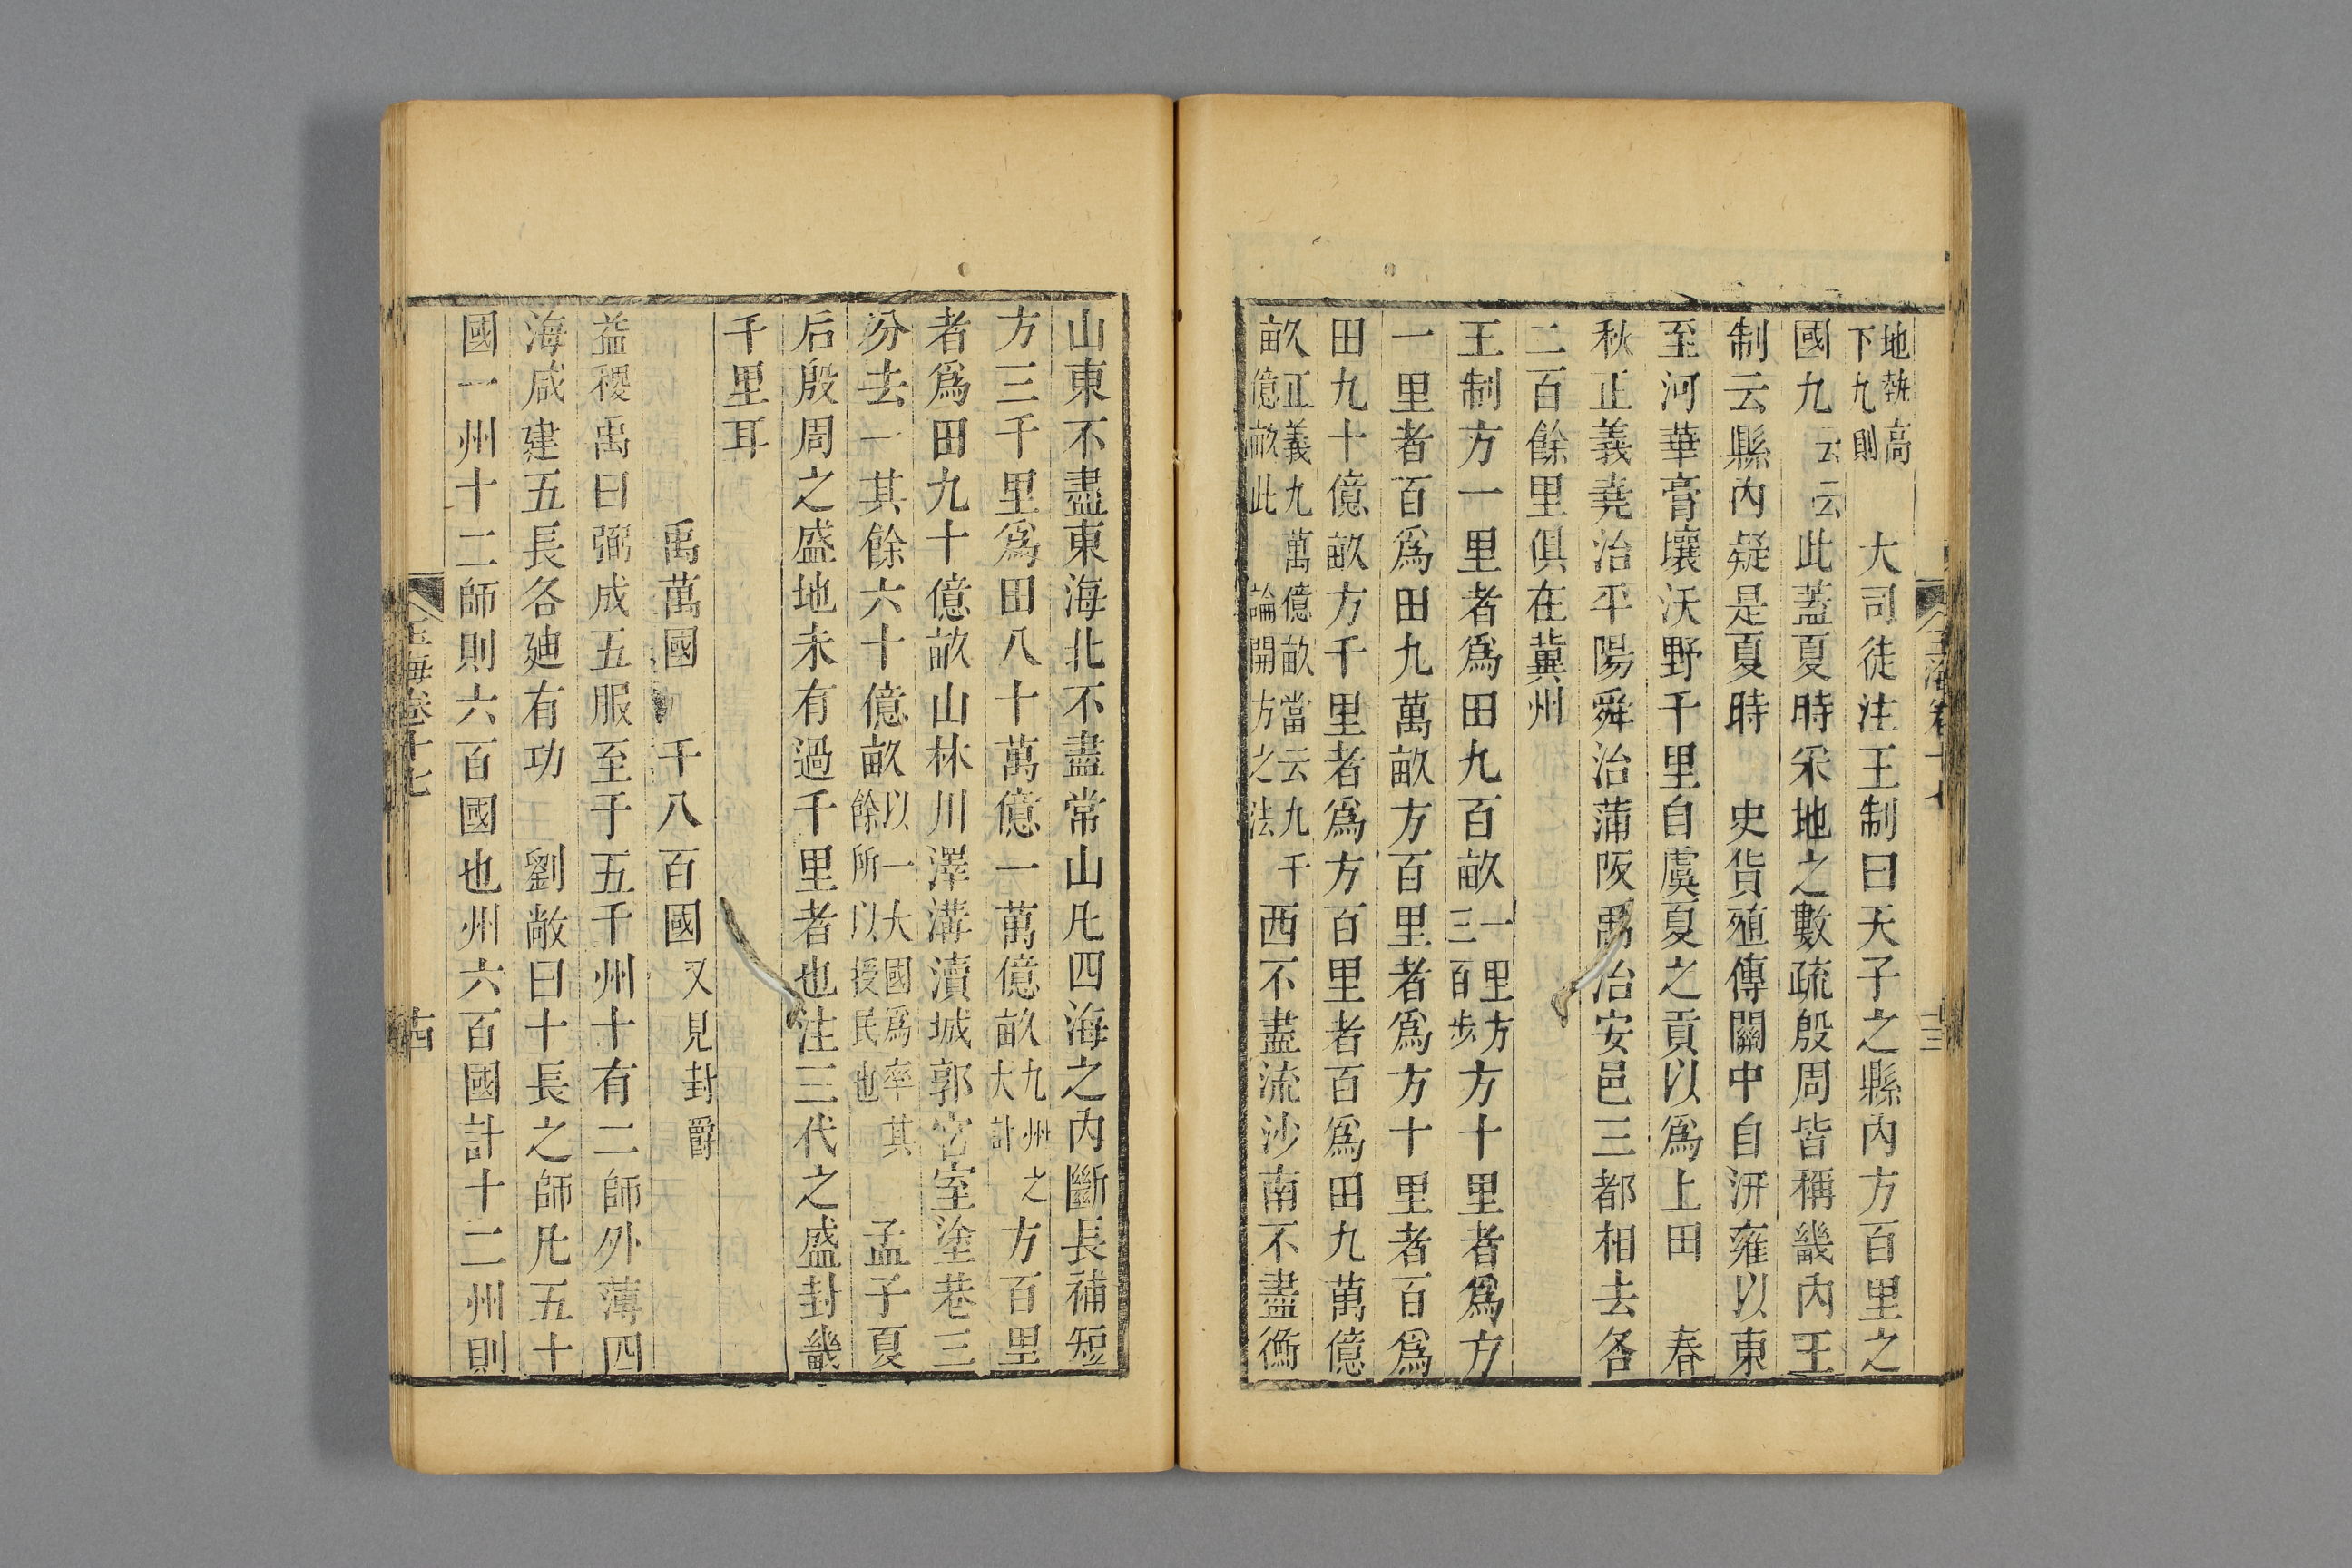 地埶高下九則　大司徒注王制曰天子之縣內方百里之
國九云云此蓋夏時采地之數疏殷周皆稱畿內王
制云縣內疑是夏時　史貨殖傳關中自汧雍以東
至河華膏壤沃野千里自虞夏之貢以爲上田　春
秋正義堯治平陽舜治蒲阪禹治安邑三都相去各
二百餘里俱在冀州
王制方一里者爲田九百畝一里方三百步方十里者爲方
一里者百爲田九萬畝方百里者爲方十里者百爲
田九十億畝方千里者爲方百里者百爲田九萬億
畝正義九萬億畝當云九千億畝此論開方之法西不盡流沙南不盡衡
山東不盡東海北不盡常山凡四海之內斷長補短
方三千里爲田八十萬億一萬億畝九州之大計方百里
者爲田九十億畝山林川澤溝瀆城郭宮室塗巷三
分去一其餘六十億畝以一大國爲率其餘所以授民也　孟子夏
后殷周之盛地未有過千里者也注三代之盛封畿
千里耳
禹萬國　千八百國又見封爵
益稷禹曰弼成五服至于五千州十有二師外薄四
海咸建五長各迪有功　劉敞曰十長之師凡五十
國一州十二師則六百國也州六百國計十二州則
玉海卷十七
十四